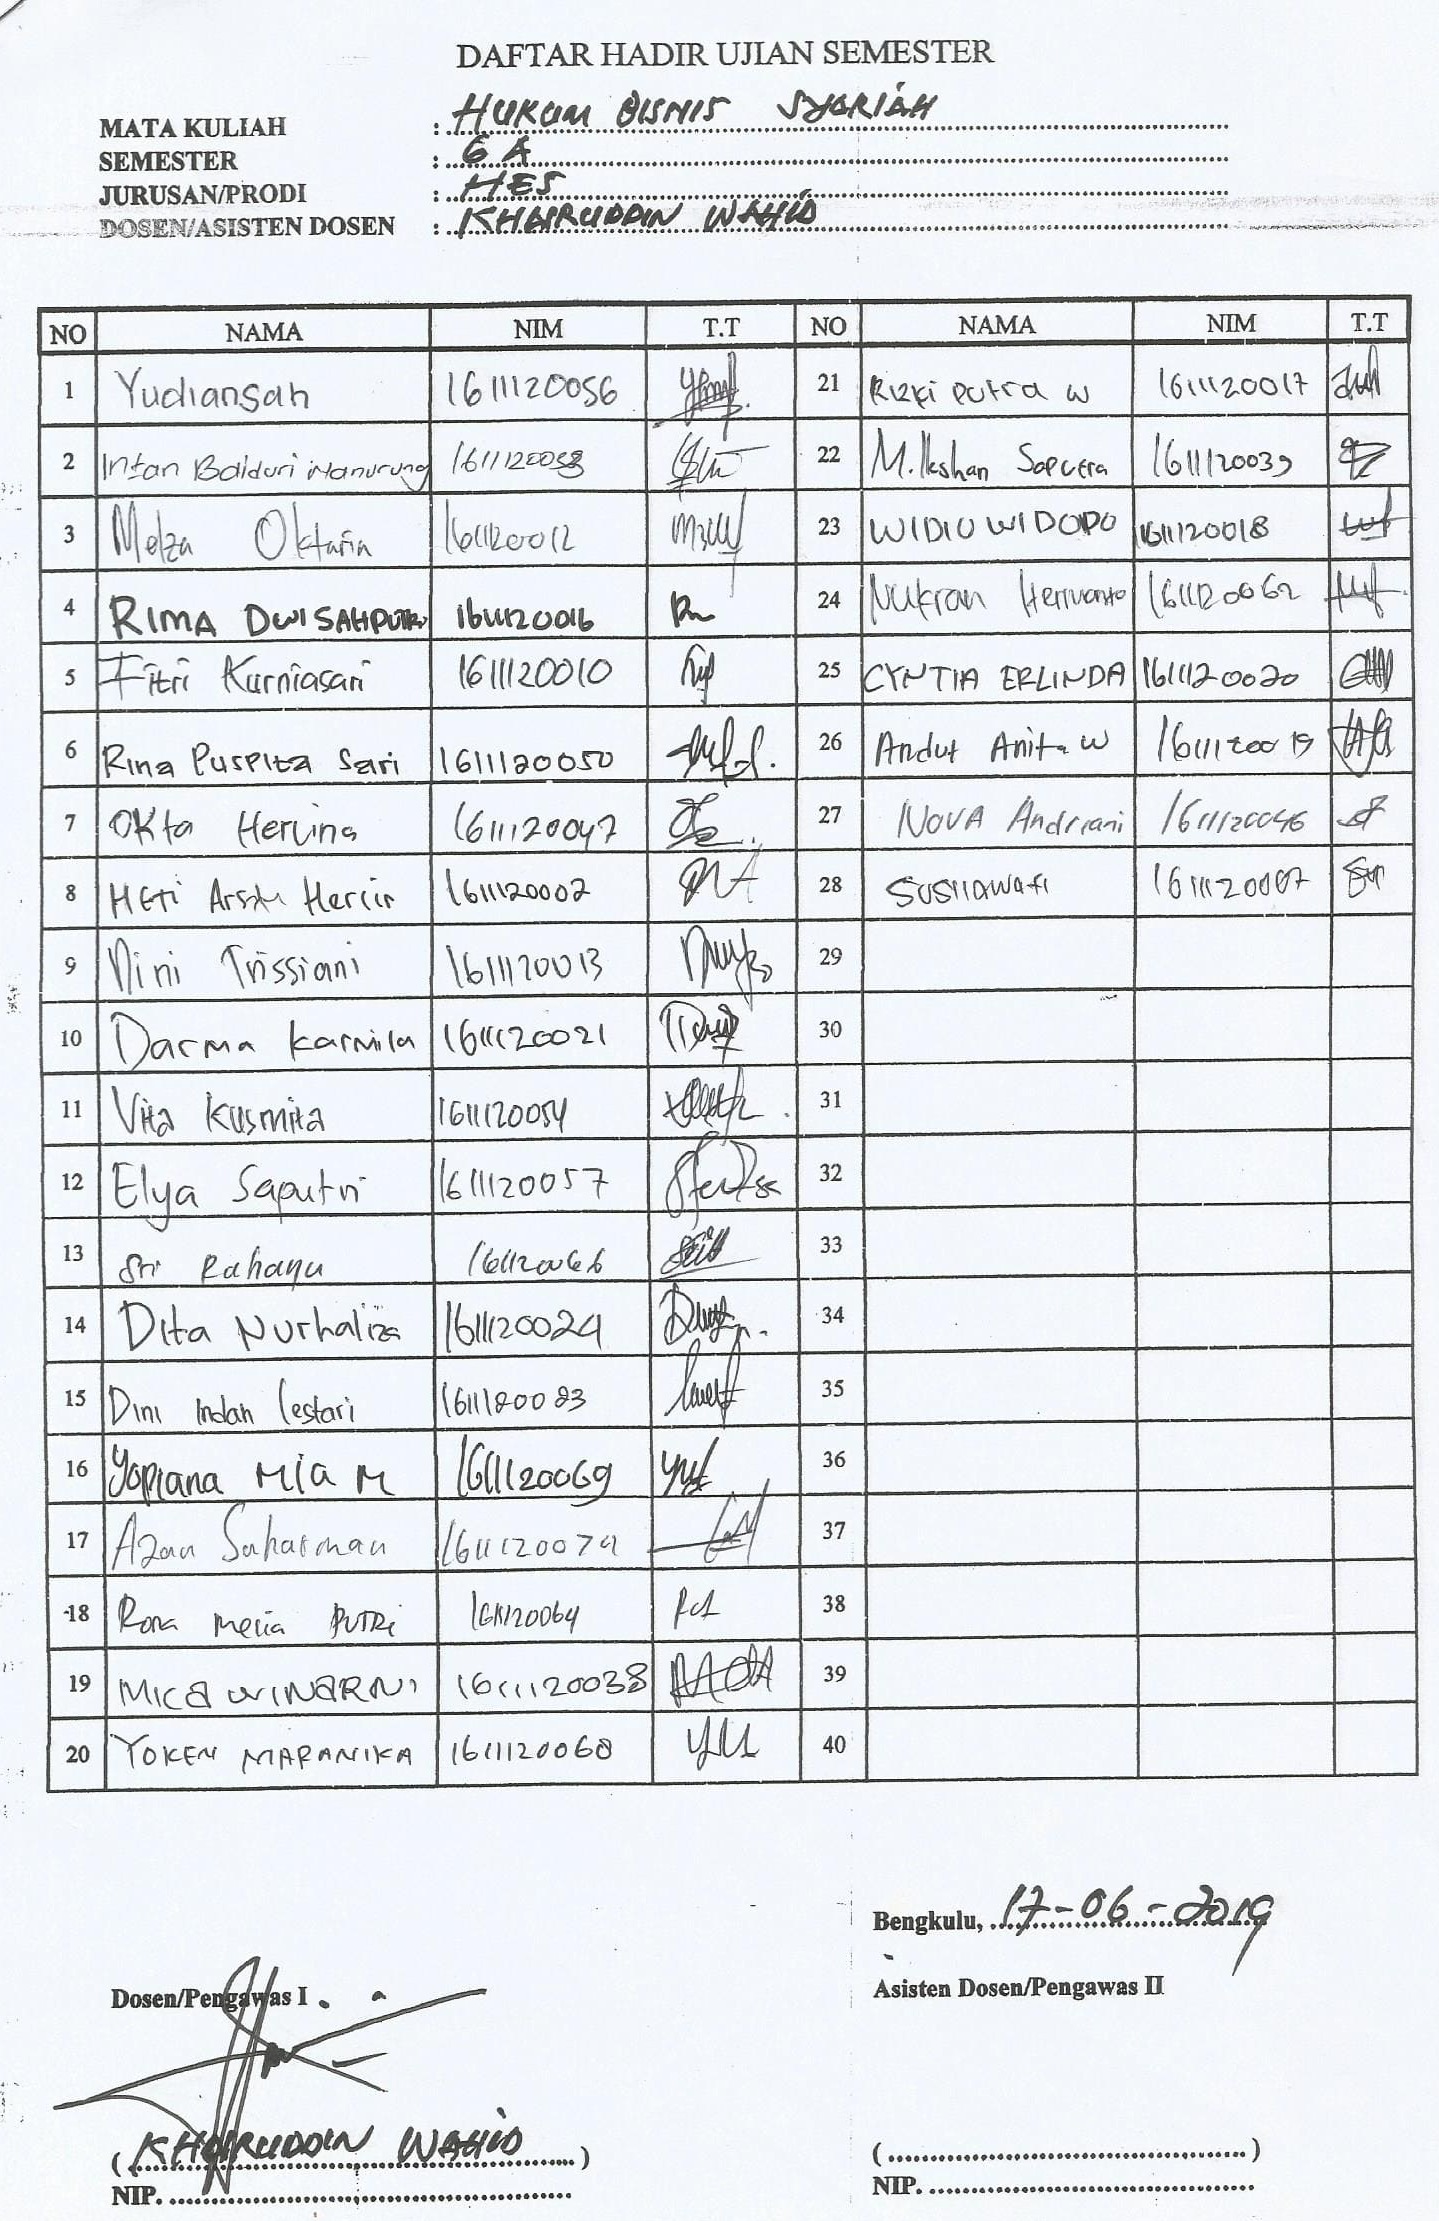 DAFTAR HADIR UJIAN SEMESTER
MATA KULIAH : HUKUM BISNIS SYARIAH
SEMESTER : 6 A
JURUSAN/PRODI : HES
DOSEN/ASISTEN DOSEN : KHAIRUDDIN WAHID
NO NAMA NIM T.T NO NAMA NIM T.T
1 Yudiansah 1611120056 21 Rizki putra W 1611120017
2 Intan Baiduri Manurung 22 M. Ikshan Saputra 1611120039
3 Melza Oktaria 1611120012 23 WIDIU WIDODO 1611120018
4 RIMA DWI SAHPUTRI 1611120016 24 Nukran Hermanto 1611120062
5 Fitri Kurniasari 1611120010 25 CYNTIA ERLINDA 1611120020
6 Rina Puspita Sari 1611120050 26 Andut Anita W 1611120019
7 Okta Herlina 1611120047 27 NOVA Andriani 1611120046
8 HETI 1611120002 28 SUSILAWATI
9 Nini Trissiani 1611120013 29
10 Darma Karmila 1611120021 30
11 Vita Kusmita 1611120054 31
12 Elya Saputri 1611120057 32
13 Sri Rahayu 33
14 Dita Nurhaliza 1611120024 34
15 Dini Indah Lestari 1611120023 35
16 Yopiana MIA M 1611120069 36
17 Azan Suharman 37
18 Rona Melia PUTRI 1611120064 38
19 MICA WINARNI 1611120038 39
20 YOKEN MARANIKA 1611120068 40
Bengkulu, 17-06-2019
Dosen/Pengawas I
Asisten Dosen/Pengawas II
( KHAIRUDDIN WAHID )
( )
NIP.
NIP.